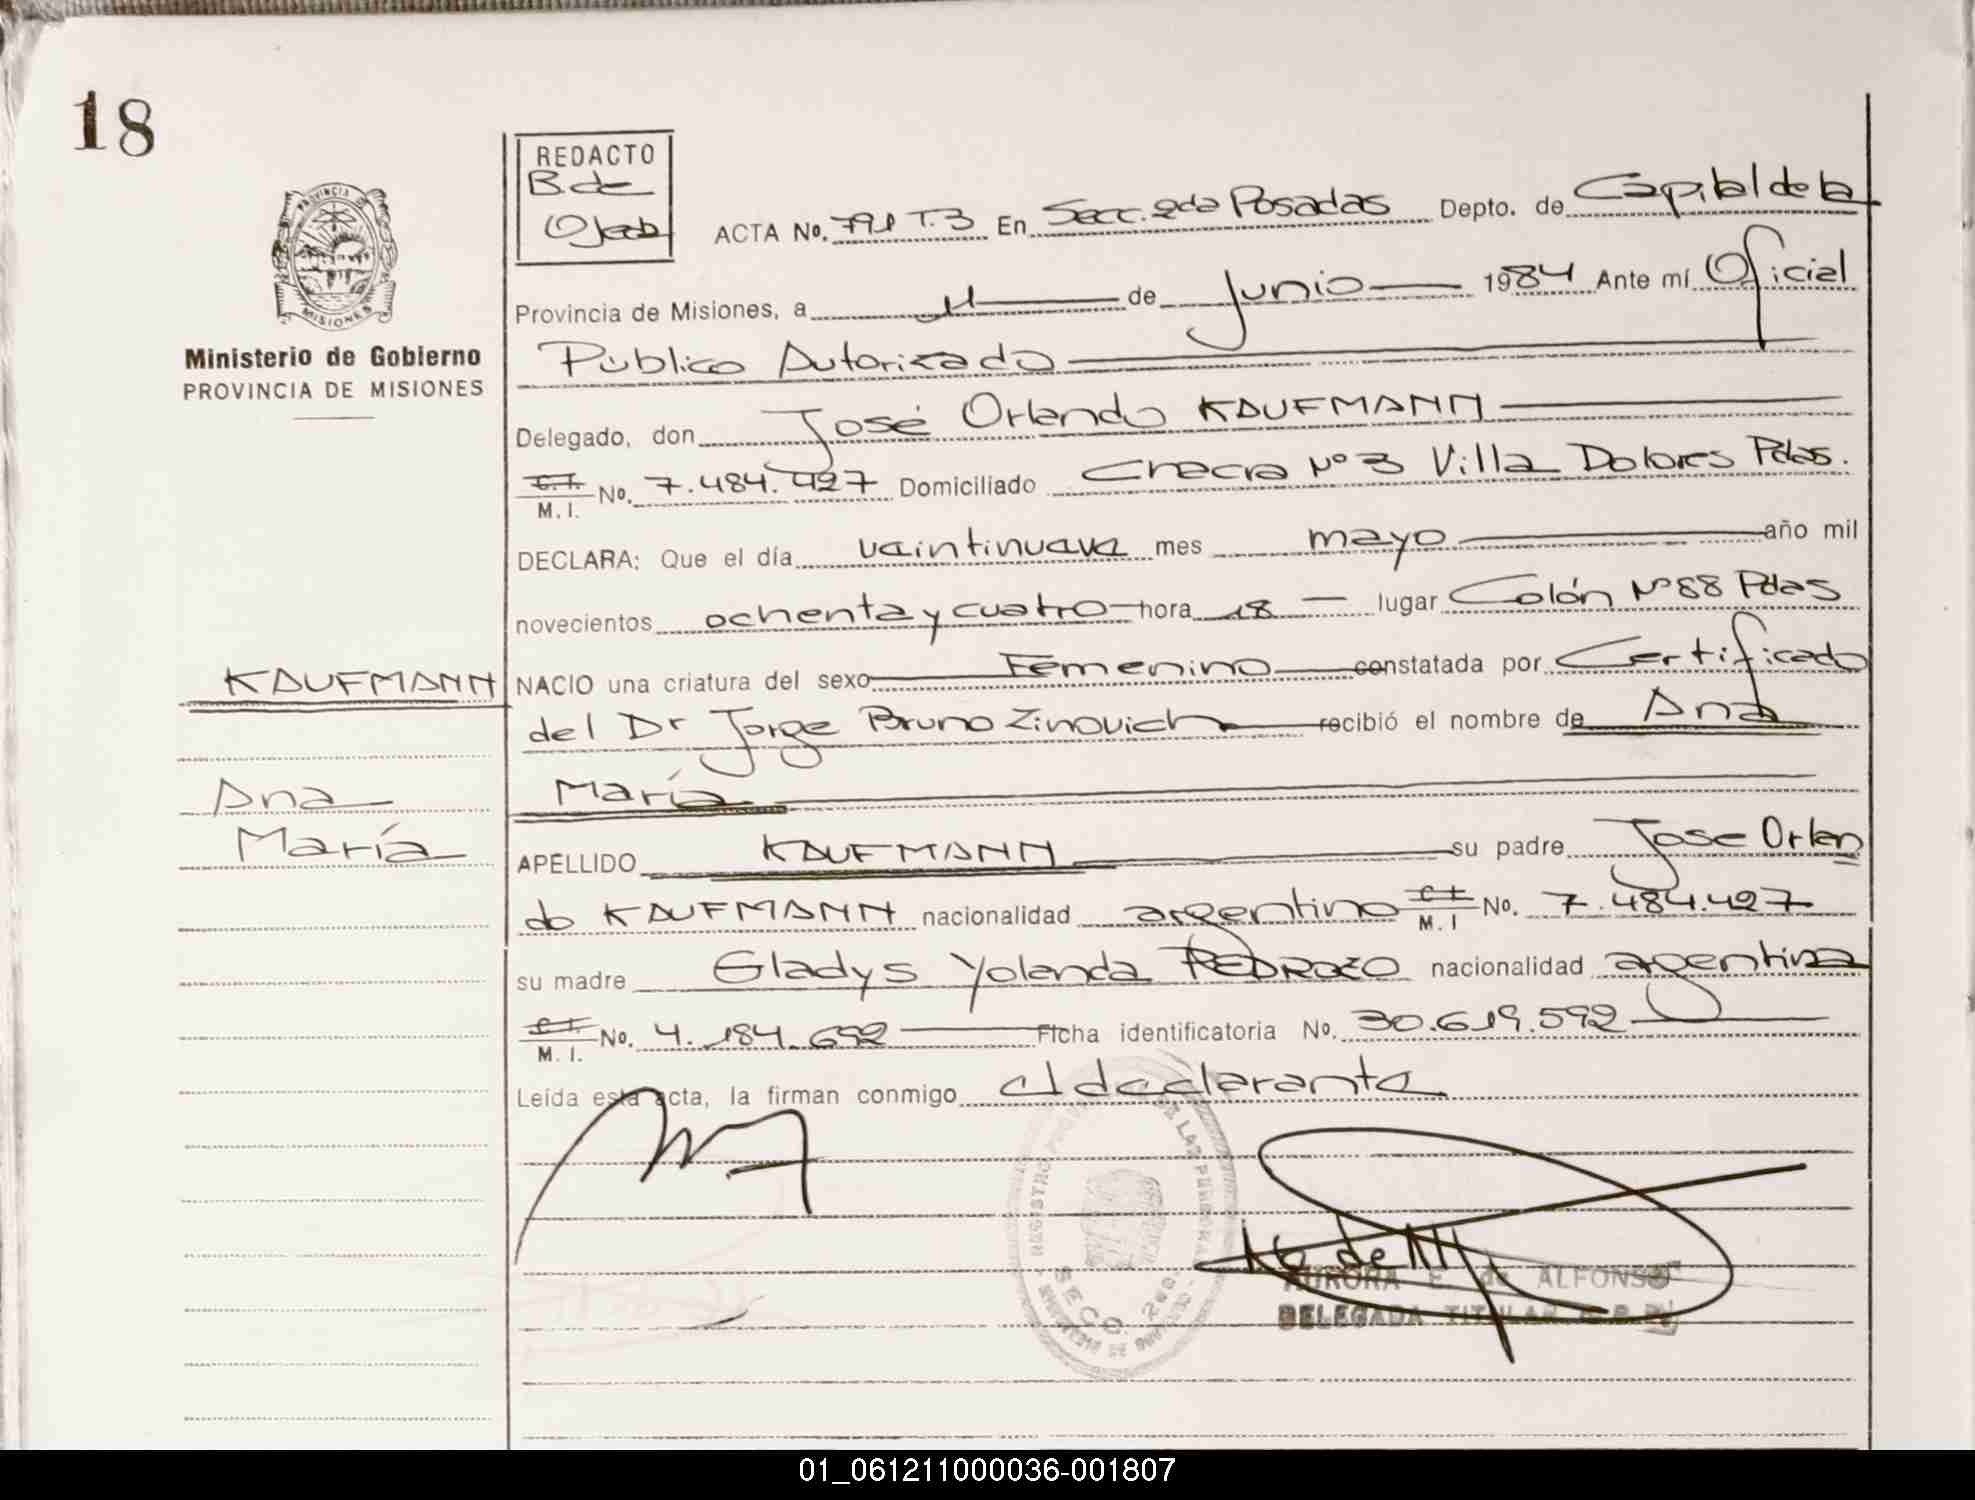 18
PROVINCIA DE
MISIONES
Ministerio de Gobierno
PROVINCIA DE MISIONES
REDACTO
B. de
Ojeda
ACTA No. 791 T.3 En Secc. 2da Posadas Depto. de Capital de la
Provincia de Misiones, a 11 de Junio 1984 Ante mí Oficial
Público Autorizado
Delegado, don José Orlando KAUFMANN
C.I. M. I. No. 7.484.427 Domiciliado Chacra Nº 3 Villa Dolores Pdas.
DECLARA: Que el día veintinueve mes mayo año mil
novecientos ochenta y cuatro hora 18 lugar Colón Nº 88 Pdas
KAUFMANN
NACIO una criatura del sexo Femenino constatada por Certificado
del Dr Jorge Bruno Zinovich recibió el nombre de Ana
Ana
María
María
APELLIDO KAUFMANN su padre Jose Orlan
do KAUFMANN nacionalidad argentino C.I. M. I No. 7.484.427
su madre Gladys Yolanda PEDROZO nacionalidad argentina
C.I. M. I. No. 4.184.692 Ficha identificatoria No. 30.619.592
Leída esta acta, la firman conmigo el declarante
REGISTRO DE LAS PERSONAS
SECC. 2da.
AURORA E. de ALFONSO
DELEGADA TITULAR
01_061211000036-001807